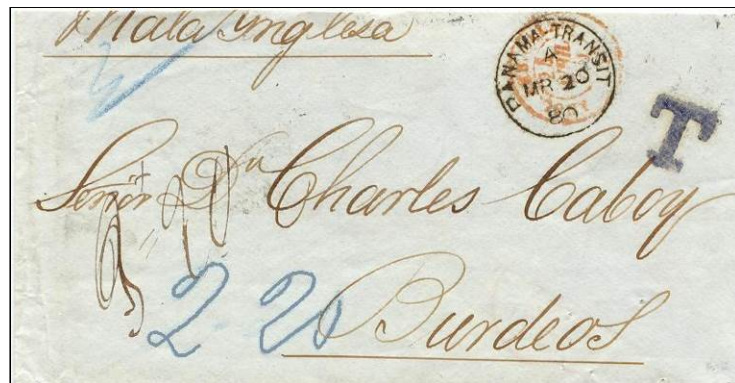 Mala Ynglesa
PANAMA-TRANSIT
A
MR 20
80
T
Señor Dn Charles Caboy
2 20
Burdeos